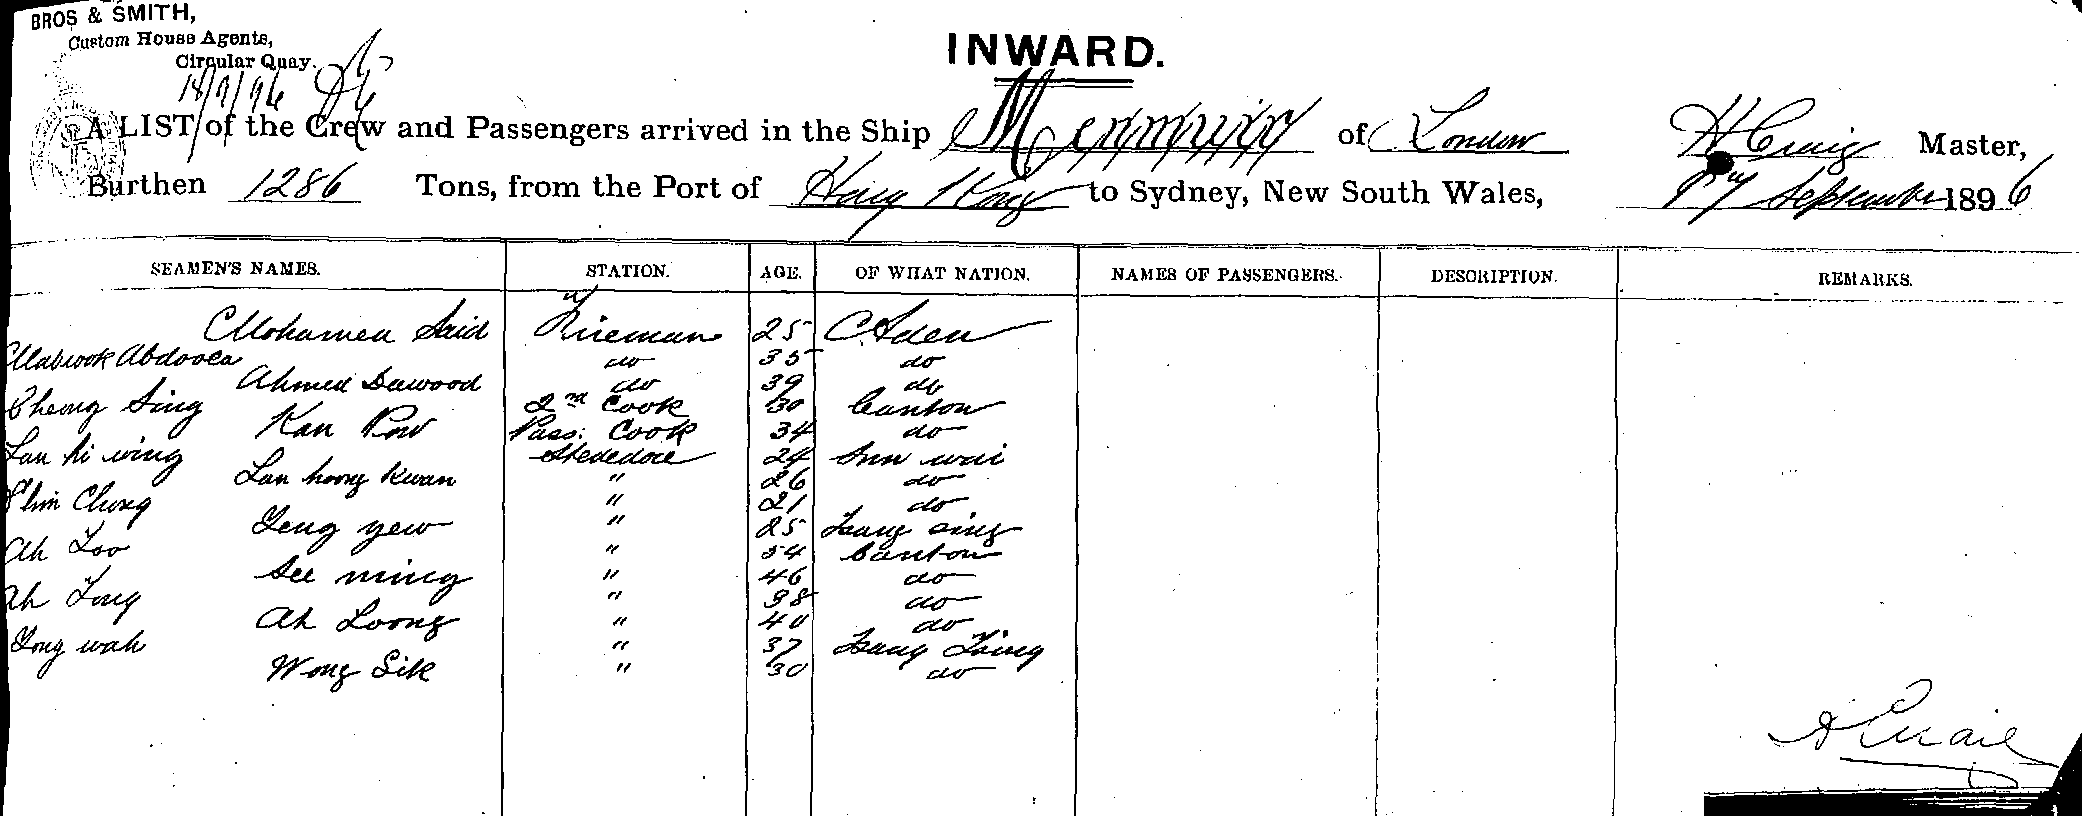 BROS & SMITH,
Custom House Agents,
Circular Quay.
18/9/96
INWARD.
A LIST of the Crew and Passengers arrived in the Ship Menmuir of London H Craig Master,
Burthen 1286 Tons, from the Port of Hong Kong to Sydney, New South Wales, September 1896
SEAMEN'S NAMES. STATION. AGE. OF WHAT NATION. NAMES OF PASSENGERS. DESCRIPTION. REMARKS.
Mohamed Said Fireman 25 Aden
Mabrook Abdoola do 35 do
Ahmed Dawood do 39 do
Cheong Sing 2nd Cook 30 Canton
Kan Pow Pass: Cook 34 do
Lau hi wing Stededore 24 Sun wai
Lan hoong Kwan " 26 do
Chong " 21 do
Yeng yew " 25 Lang sing
Ah Loo " 54 Canton
See ming " 46 do
Ah Tong " 38 do
Ah Loong " 40 do
Yong wah " 37 Lang
Wong Sik " 30 do
H Craig